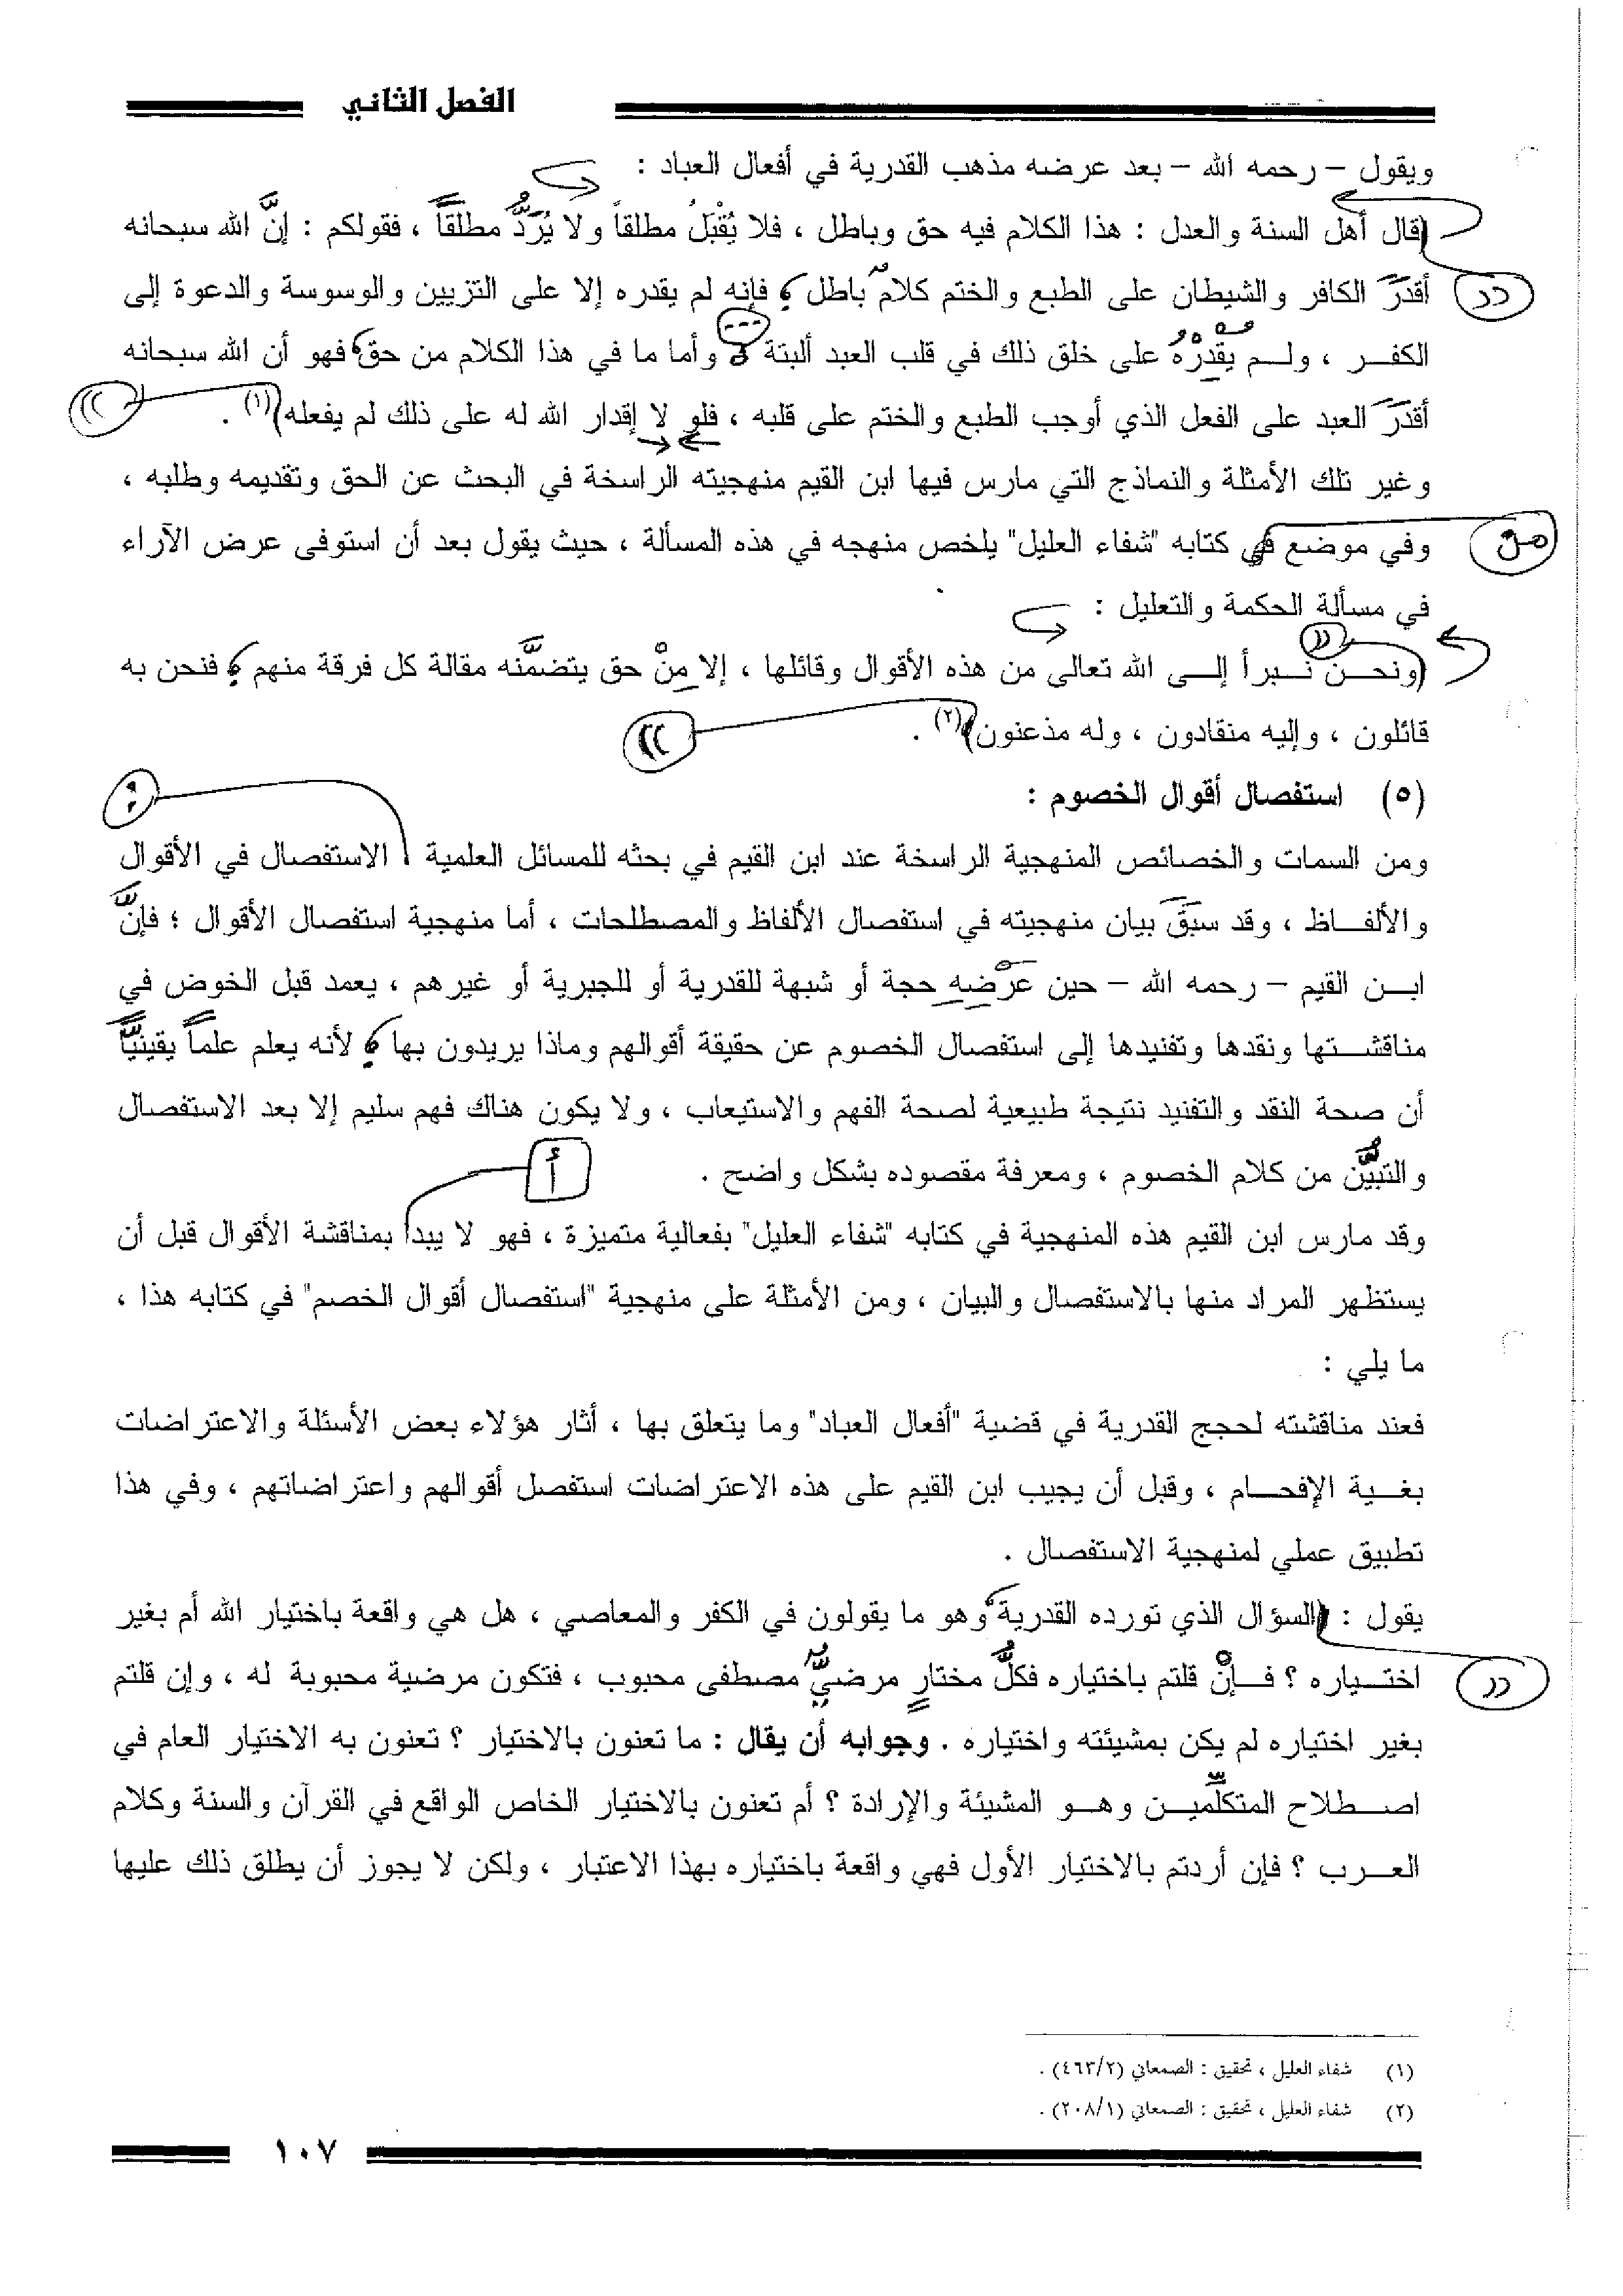 الفصل الثاني
ويقول – رحمه الله – بعد عرضه مذهب القدرية في أفعال العباد :
(قال أهل السنة والعدل : هذا الكلام فيه حق وباطل ، فلا يُقْبَلُ مطلقاً ولا يُرَدُّ مطلقاً ، فقولكم : إنَّ الله سبحانه
أقدَرَ الكافر والشيطان على الطبع والختم كلامٌ باطل ، فإنه لم يقدره إلا على التزيين والوسوسة والدعوة إلى
((
الكفر ، ولم يُقْدِرْهُ على خلق ذلك في قلب العبد ألبتة ... وأما ما في هذا الكلام من حق، فهو أن الله سبحانه
أقدَرَ العبد على الفعل الذي أوجب الطبع والختم على قلبه ، فلو لا إقدار الله له على ذلك لم يفعله)(١) .
((
وغير تلك الأمثلة والنماذج التي مارس فيها ابن القيم منهجيته الراسخة في البحث عن الحق وتقديمه وطلبه ،
وفي موضع في كتابه "شفاء العليل" يلخص منهجه في هذه المسألة ، حيث يقول بعد أن استوفى عرض الآراء
من
في مسألة الحكمة والتعليل :
((
(ونحن نبرأ إلى الله تعالى من هذه الأقوال وقائلها ، إلا مِنْ حق يتضمَّنه مقالة كل فرقة منهم ، فنحن به
قائلون ، وإليه منقادون ، وله مذعنون)(٢) .
((
(٥) استفصال أقوال الخصوم :
:
ومن السمات والخصائص المنهجية الراسخة عند ابن القيم في بحثه للمسائل العلمية الاستفصال في الأقوال
والألفاظ ، وقد سبَقَ بيان منهجيته في استفصال الألفاظ والمصطلحات ، أما منهجية استفصال الأقوال ؛ فإنَّ
ابن القيم – رحمه الله – حين عرْضِهِ حجة أو شبهة للقدرية أو للجبرية أو غيرهم ، يعمد قبل الخوض في
مناقشتها ونقدها وتفنيدها إلى استفصال الخصوم عن حقيقة أقوالهم وماذا يريدون بها ، لأنه يعلم علماً يقينيَّاً
أن صحة النقد والتفنيد نتيجة طبيعية لصحة الفهم والاستيعاب ، ولا يكون هناك فهم سليم إلا بعد الاستفصال
والتبيُّن من كلام الخصوم ، ومعرفة مقصوده بشكل واضح .
أ
وقد مارس ابن القيم هذه المنهجية في كتابه "شفاء العليل" بفعالية متميزة ، فهو لا يبدا بمناقشة الأقوال قبل أن
يستظهر المراد منها بالاستفصال والبيان ، ومن الأمثلة على منهجية "استفصال أقوال الخصم" في كتابه هذا ،
ما يلي :
فعند مناقشته لحجج القدرية في قضية "أفعال العباد" وما يتعلق بها ، أثار هؤلاء بعض الأسئلة والاعتراضات
بغية الإفحام ، وقبل أن يجيب ابن القيم على هذه الاعتراضات استفصل أقوالهم واعتراضاتهم ، وفي هذا
تطبيق عملي لمنهجية الاستفصال .
يقول : (السؤال الذي تورده القدرية، وهو ما يقولون في الكفر والمعاصي ، هل هي واقعة باختيار الله أم بغير
((
اختياره ؟ فإنْ قلتم باختياره فكلُّ مختارٍ مرضيٍّ مصطفى محبوب ، فتكون مرضية محبوبة له ، وإن قلتم
بغير اختياره لم يكن بمشيئته واختياره . وجوابه أن يقال : ما تعنون بالاختيار ؟ تعنون به الاختيار العام في
اصطلاح المتكلِّمين وهو المشيئة والإرادة ؟ أم تعنون بالاختيار الخاص الواقع في القرآن والسنة وكلام
العرب ؟ فإن أردتم بالاختيار الأول فهي واقعة باختياره بهذا الاعتبار ، ولكن لا يجوز أن يطلق ذلك عليها
(١) شفاء العليل ، تحقيق : الصمعاني (٤٦٣/٢) .
(٢) شفاء العليل ، تحقيق : الصمعاني (٢٠٨/١) .
١٠٧